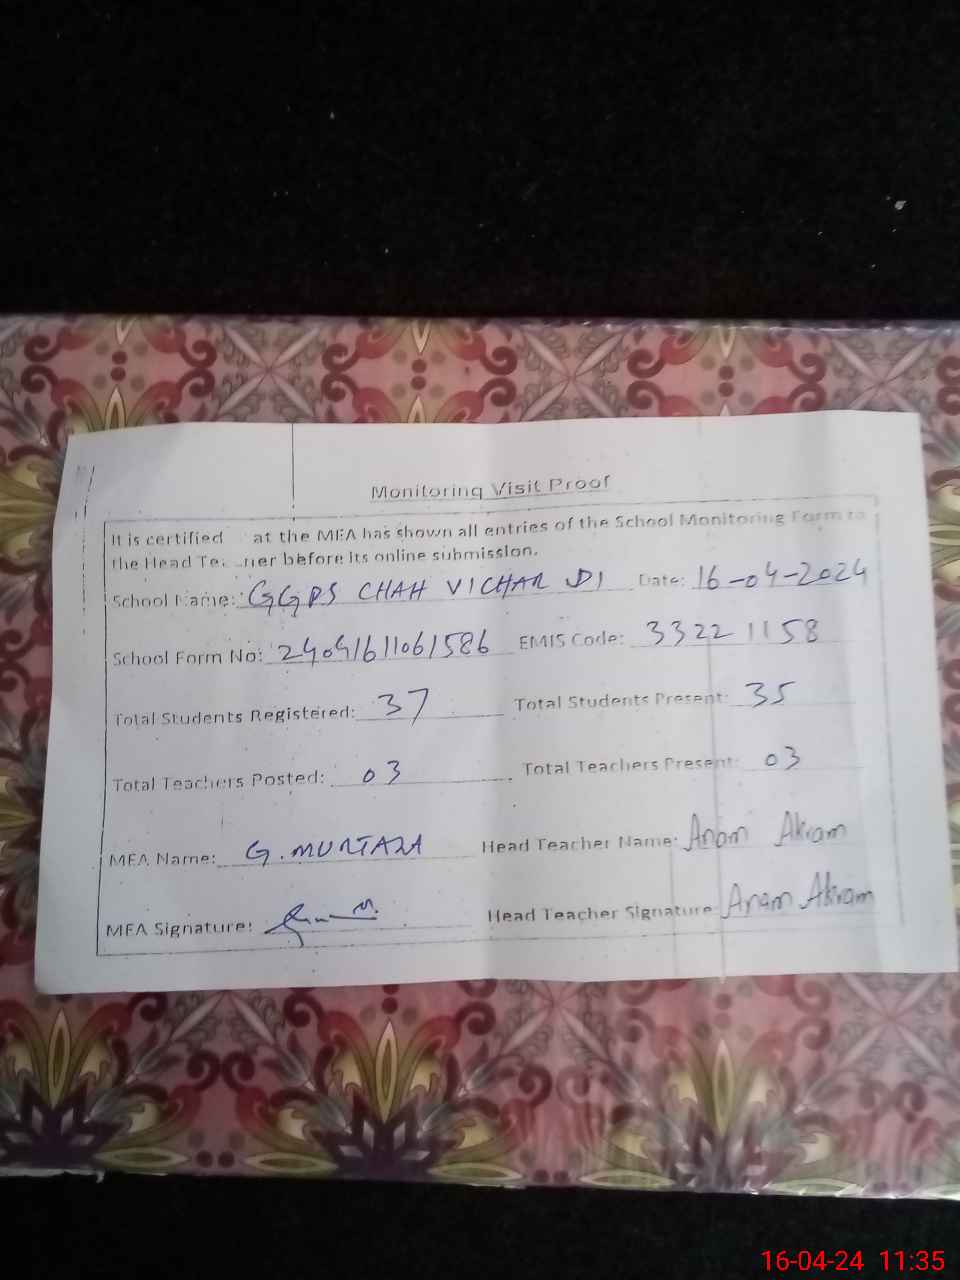 Monitoring Visit Proof
It is certified at the MEA has shown all entries of the School Monitoring Form to
the Head Te. ..ner before its online submission.
School Name: GGPS CHAH VICHAR DI Date: 16-04-2024
School Form No: 24041611061586 EMIS Code: 33221158
Total Students Registered: 37 Total Students Present: 35
Total Teachers Posted: 03 Total Teachers Present: 03
MEA Name: G. MURTAZA Head Teacher Name: Anam Akram
MEA Signature: Head Teacher Signature: Anam Akram
16-04-24 11:35